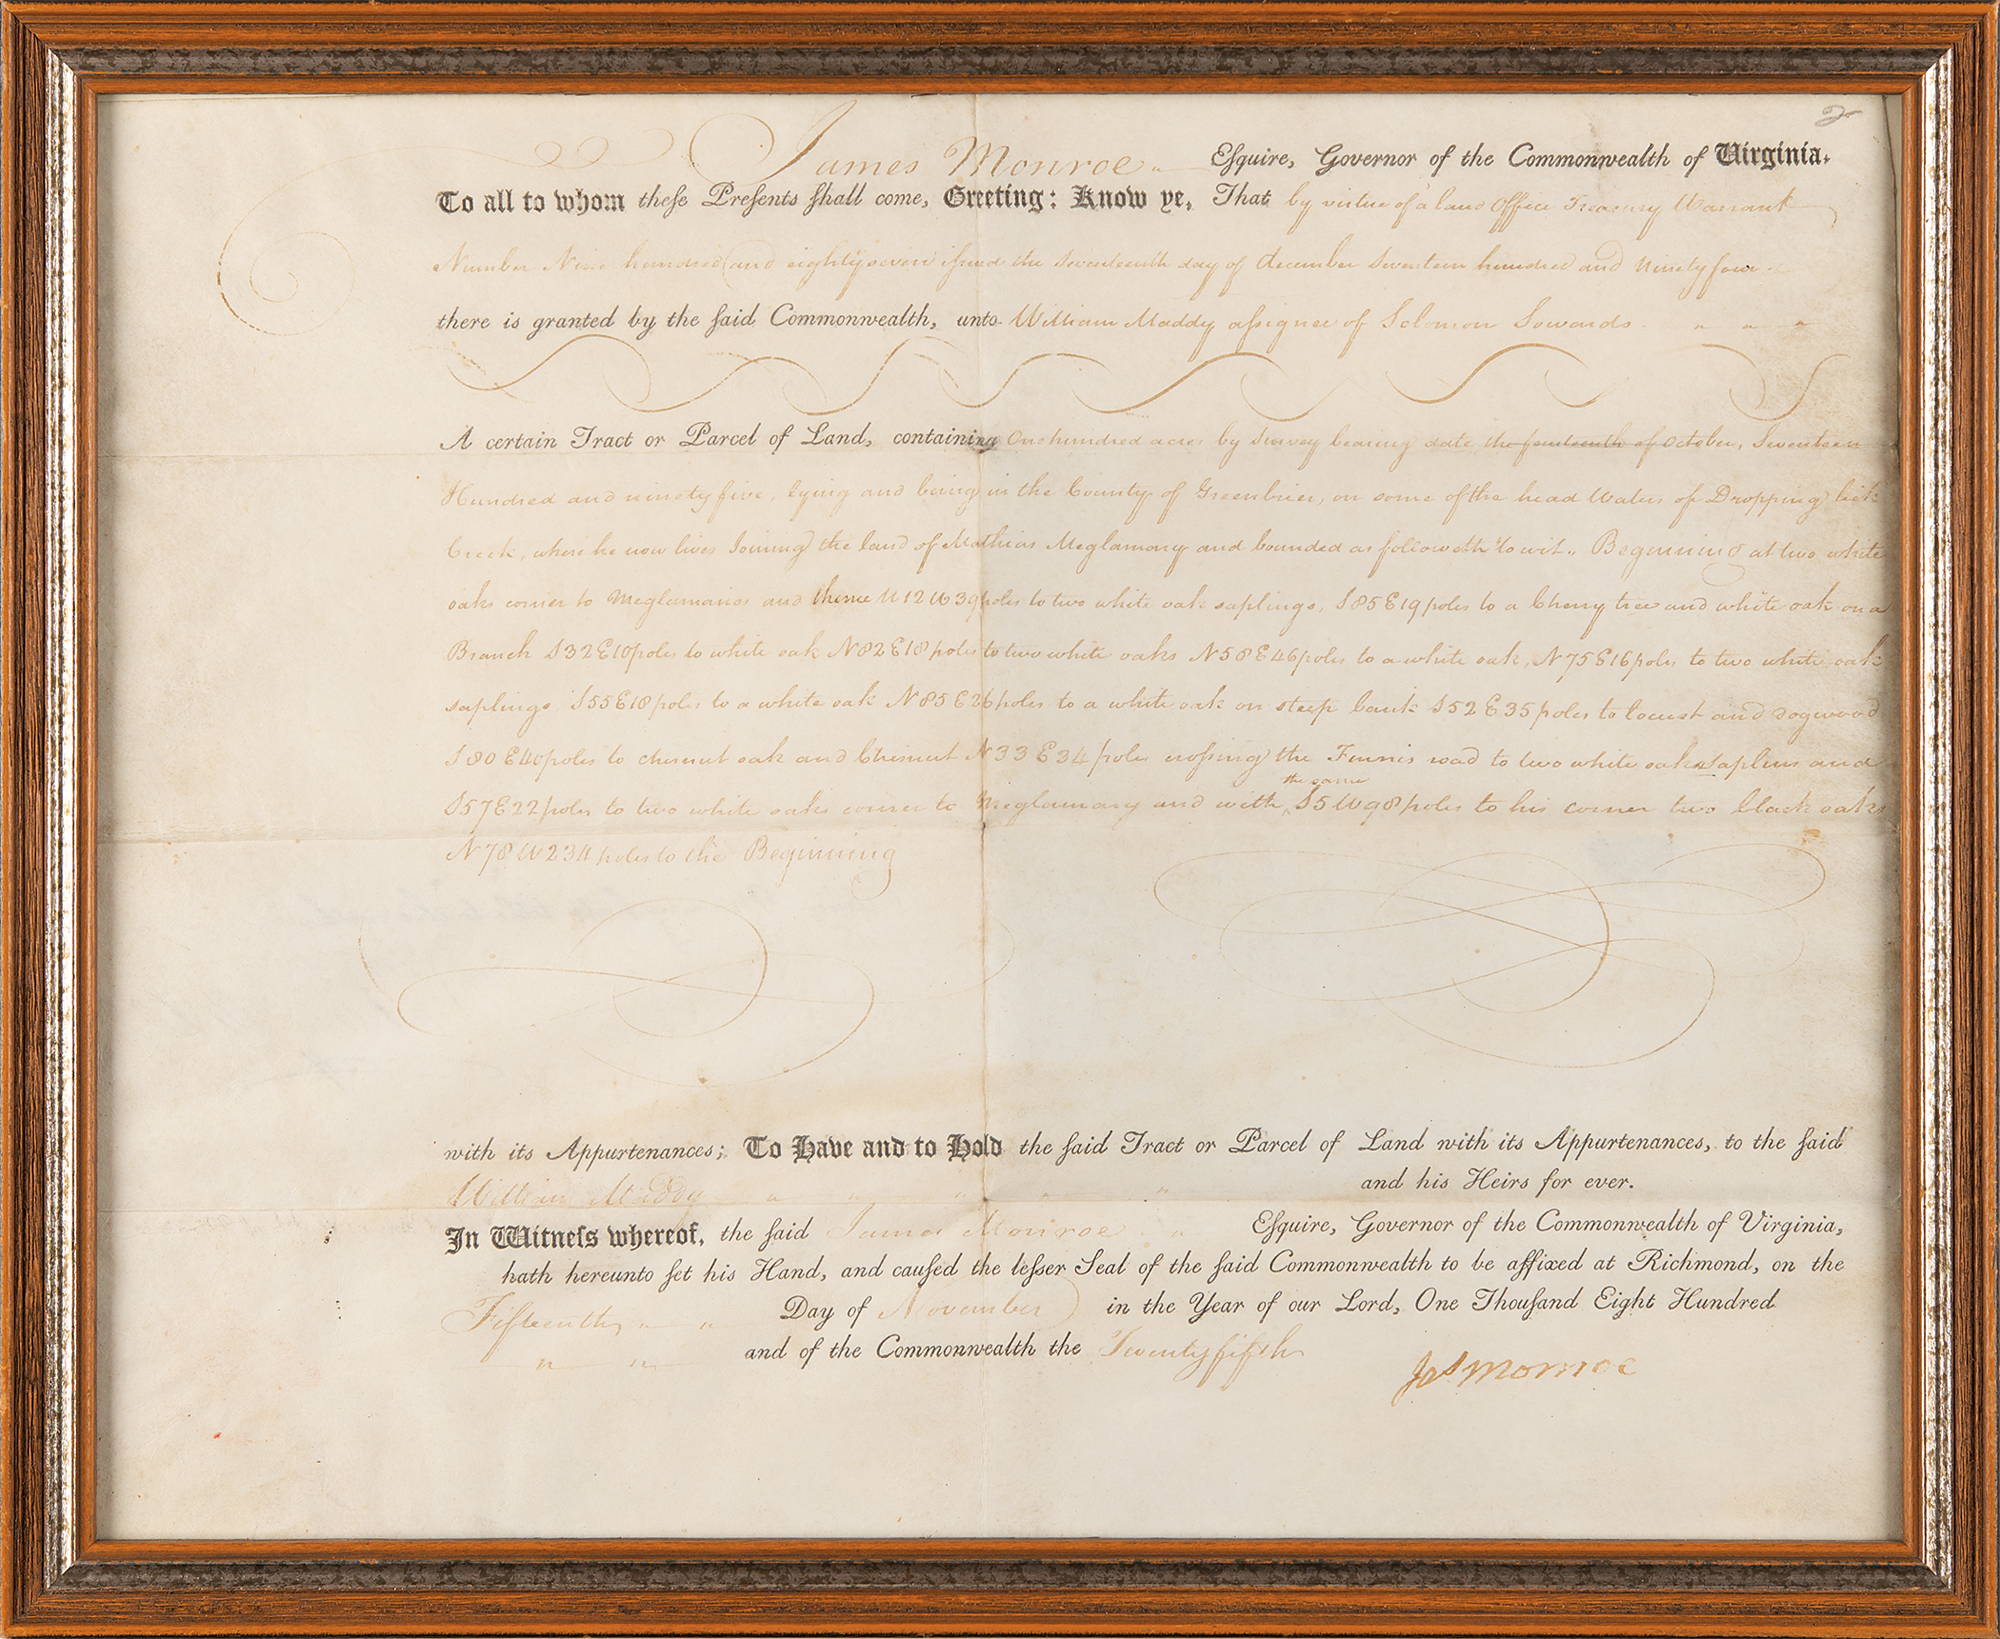 2
James Monroe Esquire, Governor of the Commonwealth of Virginia.
To all to whom these Presents shall come, Greeting: Know ye, That by virtue of a land Office Treasury Warrant
Number Nine hundred and eighty seven issued the Seventeenth day of december Seventeen hundred and Ninety four
there is granted by the said Commonwealth, unto William Maddy assignee of Solomon Sowards
A certain Tract or Parcel of Land, containing One hundred acres by Survey bearing date the fourteenth of October, Seventeen
Hundred and ninety five, lying and being in the County of Greenbrier, on some of the head Waters of Dropping lick
Creek, where he now lives Joining the land of Mathias Meglamary and bounded as followeth to wit.. Beginning at two white
oaks corner to Meglamaries and thence N12W39poles to two white oak saplings, S85E19poles to a Cherry tree and white oak on a
Branch S32E10poles to white oak N82E18poles to two white oaks N58E46poles to a white oak, N75E16poles to two white oak
saplings, S55E18poles to a white oak N85E26poles to a white oak on steep bank S52E35poles to locust and dogwood
S80E40poles to chesnut oak and Chesnut N33E34poles crossing the road to two white oak saplins and
S57E22poles to two white oaks corner to Meglamary and with the same S5W98poles to his corner two black oaks
N78W234poles to the Beginning
with its Appurtenances; To Have and to Hold the said Tract or Parcel of Land with its Appurtenances, to the said
William Maddy and his Heirs for ever.
In Witness whereof, the said James Monroe Esquire, Governor of the Commonwealth of Virginia,
hath hereunto set his Hand, and caused the lesser Seal of the said Commonwealth to be affixed at Richmond, on the
Fifteenth Day of November in the Year of our Lord, One Thousand Eight Hundred
and of the Commonwealth the Twentyfifth
Jas Monroe